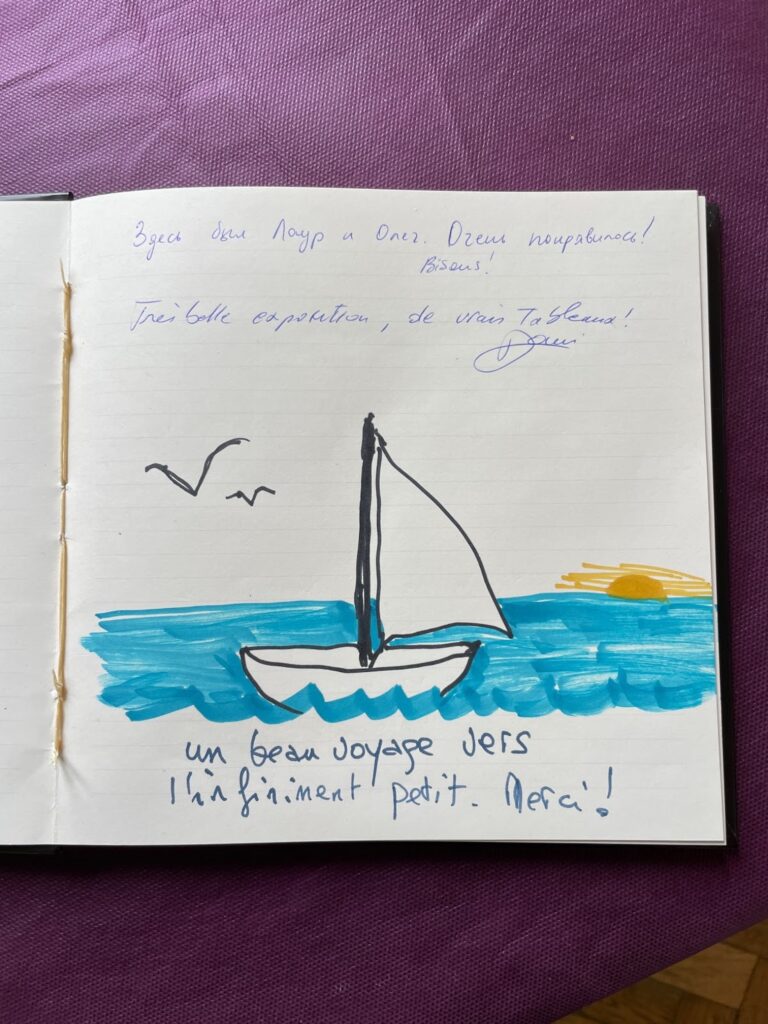 Здесь был Лаур и Олег. Очень понравилось!
Bisous!
Très belle exposition, de vrais Tableaux!
un beau voyage vers
l'infiniment petit. Merci!